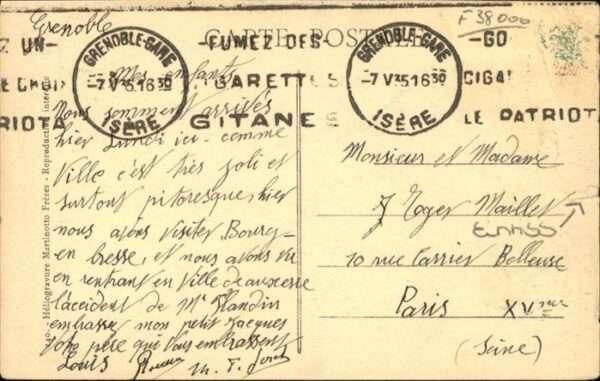 Grenoble
F 38000
CARTE POSTALE
UN-
-FUMEZ DES-
-GO
GRENOBLE-GARE
-7 V 35 16 30
ISÈRE
GRENOBLE-GARE
-7 V 35 16 30
ISÈRE
E CHOI
CIGARETTES
CIGA
RIOTA
GITANE
LE PATRIOT
Mes enfants
Nous somment arrivés
hier Lundi ici - comme
Ville c'est très joli et
surtout pitoresque, hier
nous avons visiter Bourg-
en bresse, et nous avons vu
en rentrant en ville de auxerre
l'accident de Mr Flandin
embrasser mon petit Jacques
Votre père que vous embrassent
Louis
Monsieur et Madame
J Roger Maillet
10 rue Carrier Belleuse
Paris XVme
(Seine)
- Héliogravure Martinotto Frères - Reproduction interdite